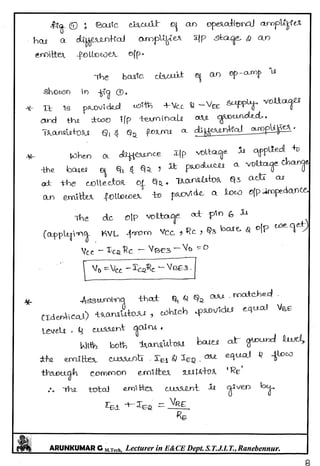 fig ① : Basic circuit of an operational amplifier
has a differential amplifier i/p stage & an
emitter follower o/p.
The basic circuit of an op-amp is
shown in fig ①.
* It is provided with +Vcc & -VEE supply voltages
and the two i/p terminals are grounded.
Transistors Q1 & Q2 forms a differential amplifier.
* When a difference i/p voltage is applied to
the bases of Q1 & Q2, it produces a voltage change
at the collector of Q2. Transistor Q3 acts as
an emitter follower to provide a low o/p impedance
The dc o/p voltage at pin 6 is
(applying KVL from Vcc, Rc, Q3 base & o/p we get)
Vcc - IC2 Rc - VBE3 - Vo = 0
Vo = Vcc - IC2Rc - VBE3.
* Assuming that Q1 & Q2 are matched
(Identical) transistors, which provides equal VBE
levels & current gains.
With both transistors bases at ground level,
the emitter currents IE1 & IE2 are equal & flow
through common emitter resistor 'RE'
∴ The total emitter current is given by.
IE1 + IE2 = VRE / RE
ARUNKUMAR G M.Tech, Lecturer in E&CE Dept. S.T.J.I.T., Ranebennur.
8